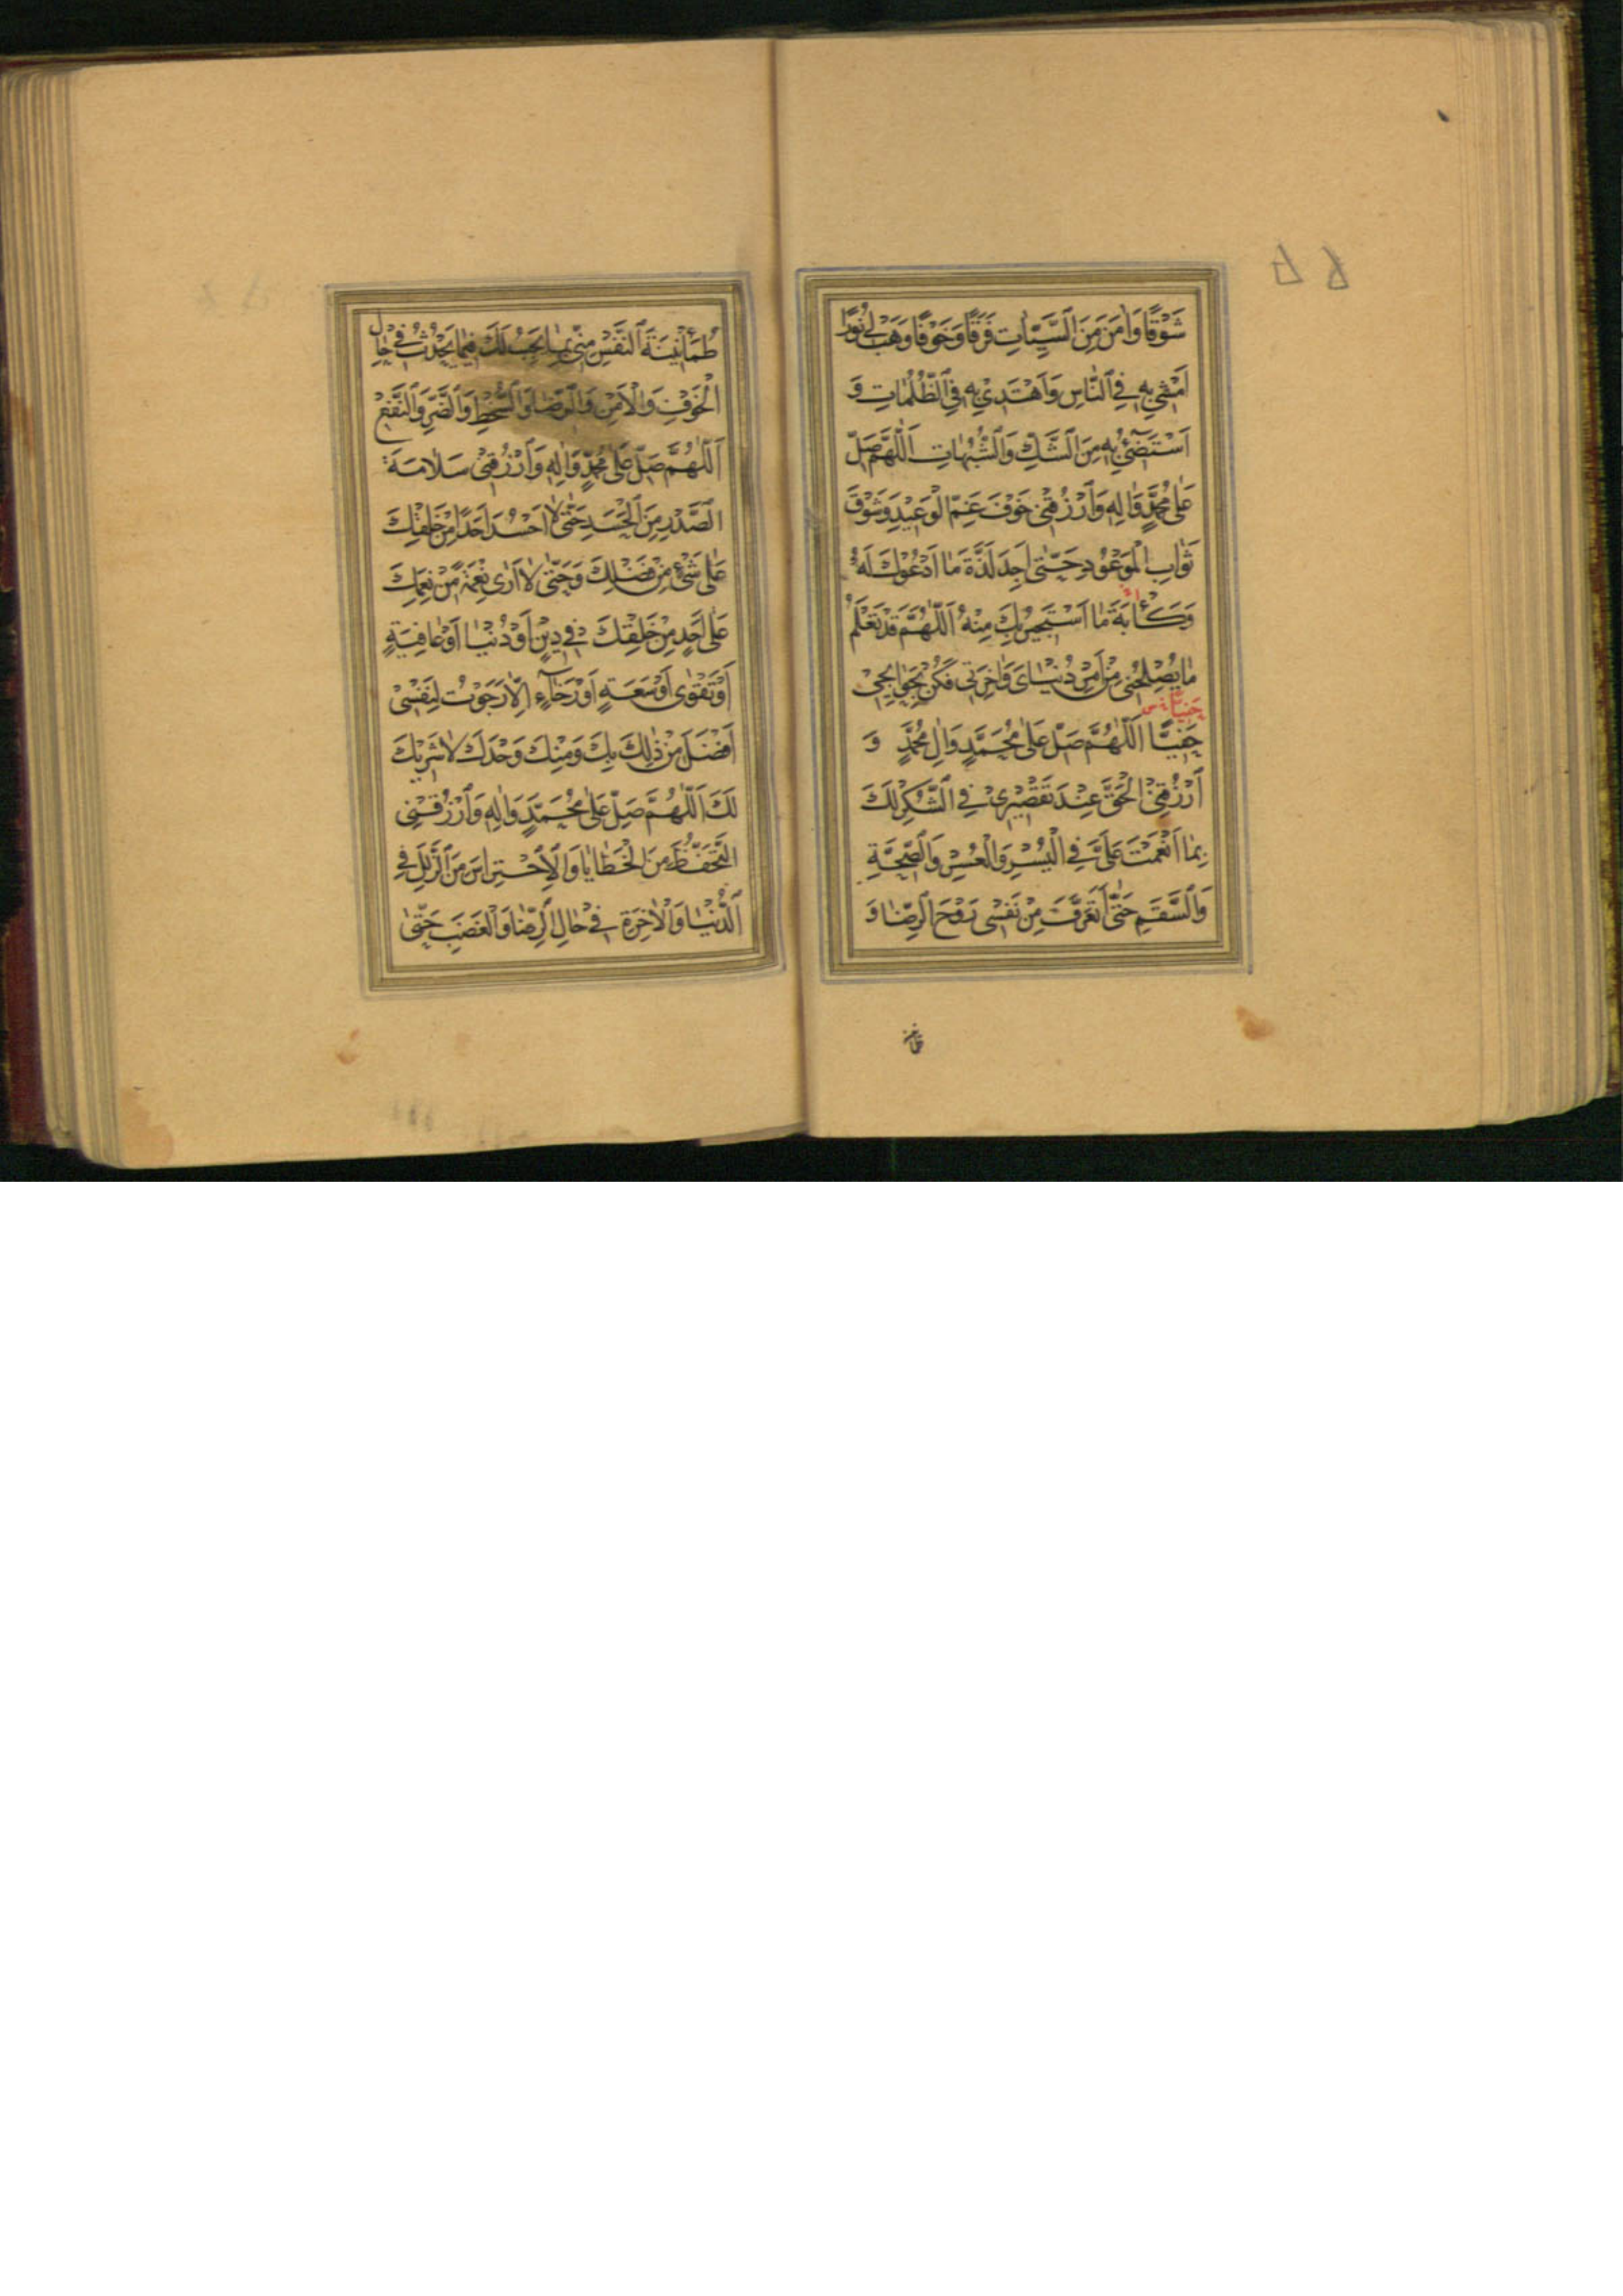 شَوْقًا وَاٰمَنَ مِنَ السَّيِّئَاتِ فَرَقًا وَخَوْفًا وَهَبْ لِي نُورًا
اَمْشِي بِهِ فِي النَّاسِ وَاَهْتَدِي بِهِ فِي الظُّلُمَاتِ وَ
اَسْتَضِيْءُ بِهِ مِنَ الشَّكِّ وَالشُّبُهَاتِ اَللّٰهُمَّ صَلِّ
عَلٰى مُحَمَّدٍ وَاٰلِهِ وَارْزُقْنِي خَوْفَ غَمِّ الْوَعِيْدِ وَشَوْقَ
ثَوَابِ الْمَوْعُوْدِ حَتّٰى اَجِدَ لَذَّةَ مَا اَدْعُوْكَ لَهُ
وَكَأْبَةَ مَا اَسْتَجِيْرُ بِكَ مِنْهُ اَللّٰهُمَّ قَدْ تَعْلَمُ
مَا يُصْلِحُنِي مِنْ اَمْرِ دُنْيَايَ وَاٰخِرَتِي فَكُنْ بِحَوَائِجِيْ
حَفِيًّا
حَفِيًّا اَللّٰهُمَّ صَلِّ عَلٰى مُحَمَّدٍ وَاٰلِ مُحَمَّدٍ وَ
ارْزُقْنِي الْحَقَّ عِنْدَ تَقْصِيْرِيْ فِي الشُّكْرِ لَكَ
بِمَا اَنْعَمْتَ عَلَيَّ فِي الْيُسْرِ وَالْعُسْرِ وَالصِّحَّةِ
وَالسَّقَمِ حَتّٰى اَتَعَرَّفَ مِنْ نَفْسِي رَوْحَ الرِّضَا وَ
طُمَأْنِيْنَةَ النَّفْسِ مِنِّي بِمَا يَجِبُ لَكَ فِيمَا يَحْدُثُ فِي حَالِ
الْخَوْفِ وَالْاَمْنِ وَالرِّضَا وَالسُّخْطِ وَالضَّرِّ وَالنَّفْعِ
اَللّٰهُمَّ صَلِّ عَلٰى مُحَمَّدٍ وَاٰلِهِ وَارْزُقْنِيْ سَلَامَةَ
الصَّدْرِ مِنَ الْحَسَدِ حَتّٰى لَا اَحْسُدَ اَحَدًا مِنْ خَلْقِكَ
عَلٰى شَيْءٍ مِنْ فَضْلِكَ وَحَتّٰى لَا اَرٰى نِعْمَةً مِنْ نِعَمِكَ
عَلٰى اَحَدٍ مِنْ خَلْقِكَ فِي دِيْنٍ اَوْ دُنْيَا اَوْ عَافِيَةٍ
اَوْ تَقْوٰى اَوْ سَعَةٍ اَوْ رَخَاءٍ اِلَّا رَجَوْتُ لِنَفْسِيْ
اَفْضَلَ مِنْ ذٰلِكَ بِكَ وَمِنْكَ وَحْدَكَ لَا شَرِيْكَ
لَكَ اَللّٰهُمَّ صَلِّ عَلٰى مُحَمَّدٍ وَاٰلِهِ وَارْزُقْنِي
التَّحَفُّظَ مِنَ الْخَطَايَا وَالْاِحْتِرَاسَ مِنَ الزَّلَلِ فِي
الدُّنْيَا وَالْاٰخِرَةِ فِي حَالِ الرِّضَا وَالْغَضَبِ حَتّٰى